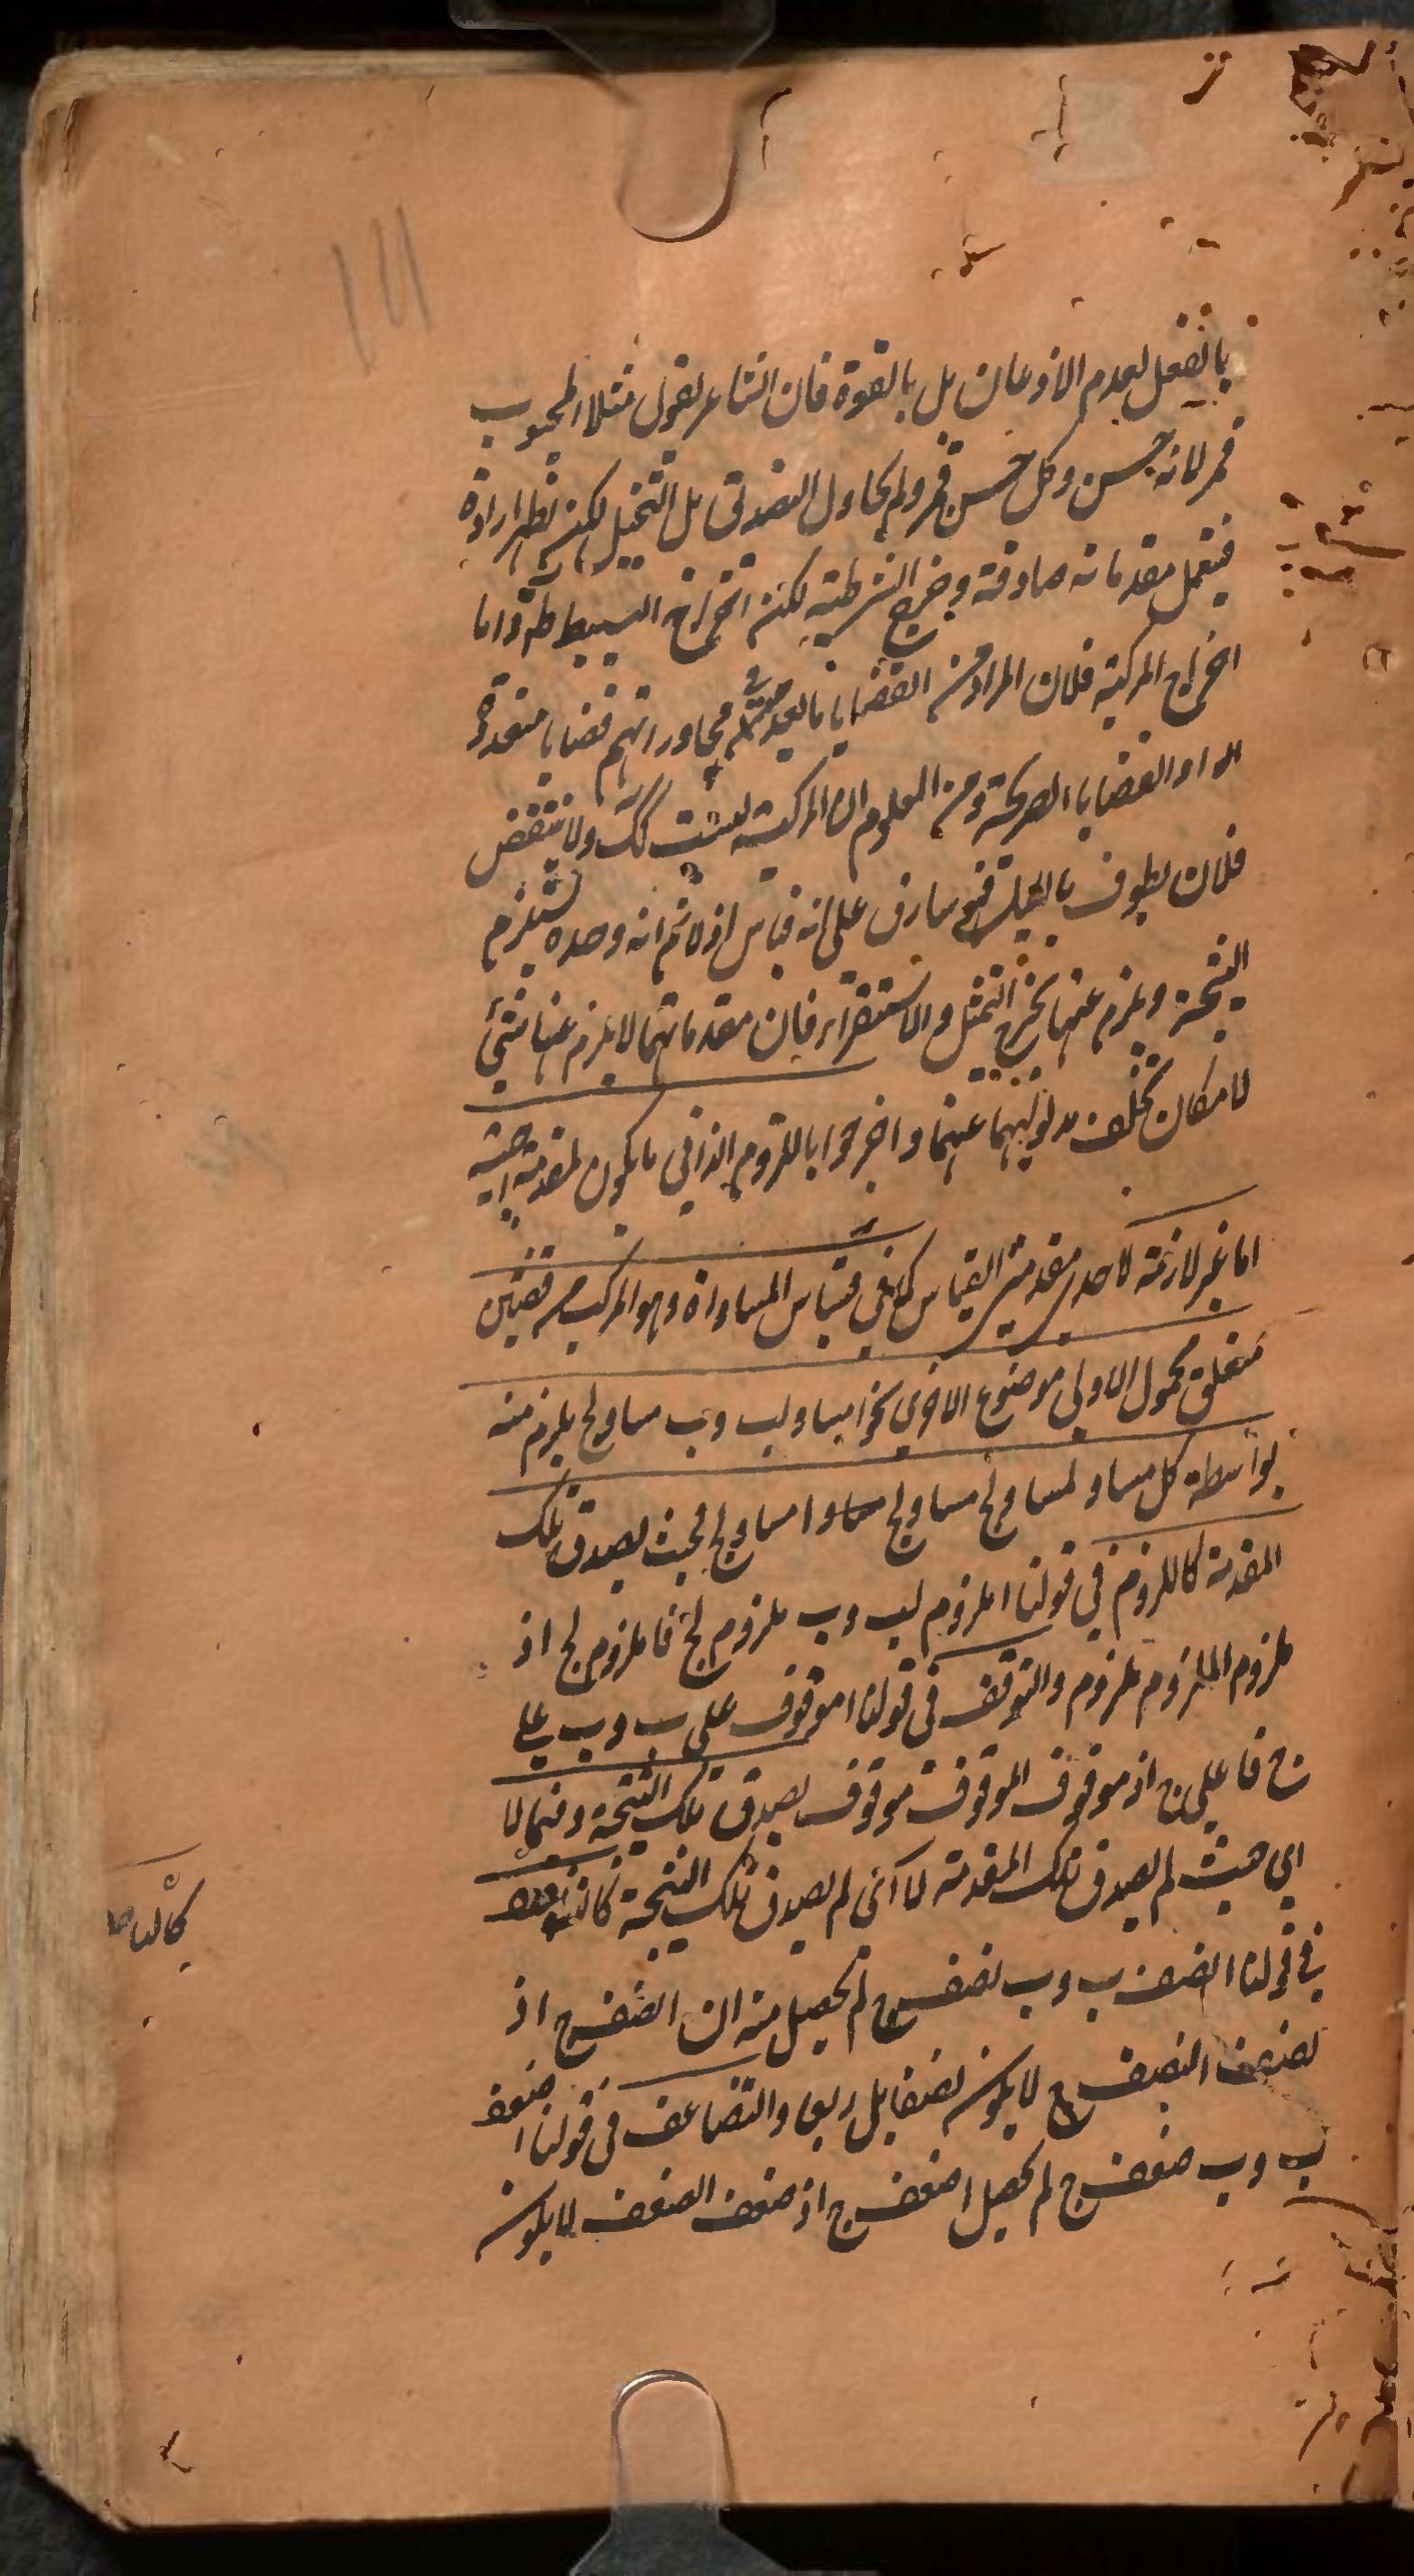 ١١١
بالفعل لعدم الاذعان بل بالقوة فان الشاعر يقول مثلا المحبوب
قمر لانه حسن وكل حسن قمر ولم يحاول التصديق بل التخييل لكنه يظهر ارادة
فيتعمل مقدماته صادقة وخرج الشرطية لكن اخراج البسيط ظ واما
اخراج المركبة فلان المراد من القضايا ما يعد في محاوراتهم قضايا متعددة
او القضايا الصريحة ومن المعلوم ان المركبة ليست كك ولا ينتقض
فلان يطوف بالليل فهو سارق على انه قياس اذ لا ثم انه وحده يستلزم
النتيجة ويلزم عنها يخرج التمثيل والاستقراء فان مقدماتهما لا يلزم عنها شيئ
لامكان تخلف مدلوليهما عنهما واخرجوا باللزوم الذاتي ما يكون لمقدمة اجنبية
اما غير لازمة لاحدى مقدمتي القياس كما في قياس المساواة وهو المركب من قضيتين
متعلق محمول الاولى موضوع الاخرى نحو ا مساو لب وب مساو لج يلزم منه
بواسطة كل مساو لمساوي ج مساو لج ا مساو لج فحيث يصدق تلك
المقدمة كاللزوم في قولنا ا ملزوم لب وب ملزوم لج فا ملزوم لج اذ
ملزوم الملزوم ملزوم والتوقف في قولنا ا موقوف على ب وب على
ج فا على ج اذ موقوف الموقوف موقوف يصدق تلك النتيجة وفيما لا
اي حيث لم يصدق تلك المقدمة لا اى لم يصدق تلك النتيجة كالتناصف
في قولنا ا نصف ب وب نصف ج لم يحصل منه ان ا نصف ج اذ
نصف النصف ج لا يكون نصفا بل ربعا والتضاعف في قولنا ا ضعف
ب وب ضعف ج لم يحصل ا ضعف ج اذ ضعف الضعف لا يكون